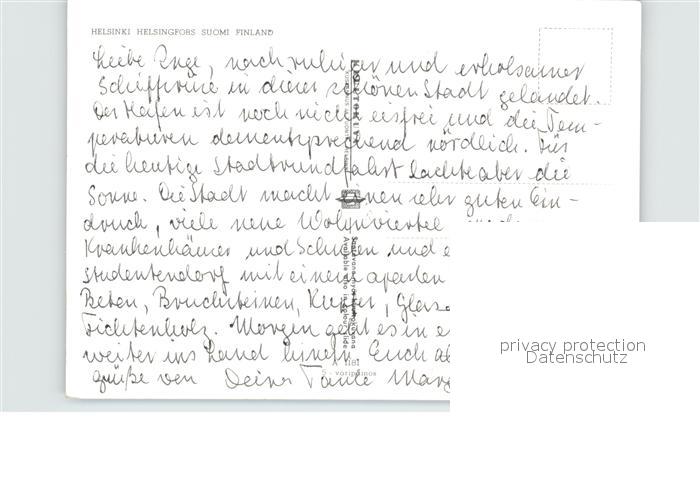 HELSINKI HELSINGFORS SUOMI FINLAND
Liebe Inge, nach ruhiger und erholsamer
Schiffsreise in dieser schönen Stadt gelandet.
Der Hafen ist noch nicht eisfrei und die Tem-
peraturen dementsprechend nördlich. Für
die heutige Stadtrundfahrt lachte aber die
Sonne. Die Stadt macht einen sehr guten Ein-
druck, viele neue Wohnviertel
Krankenhäuser und Schulen und
Studentendorf mit einem aparten
Beton, Bruchsteinen, Kupfer, Glas
Fichtenholz. Morgen geht es in
weiter ins Land hinein. Euch
grüße von Deiner Tante
Available also in colour slide
A 1181
5 - väripainos
privacy protection
Datenschutz